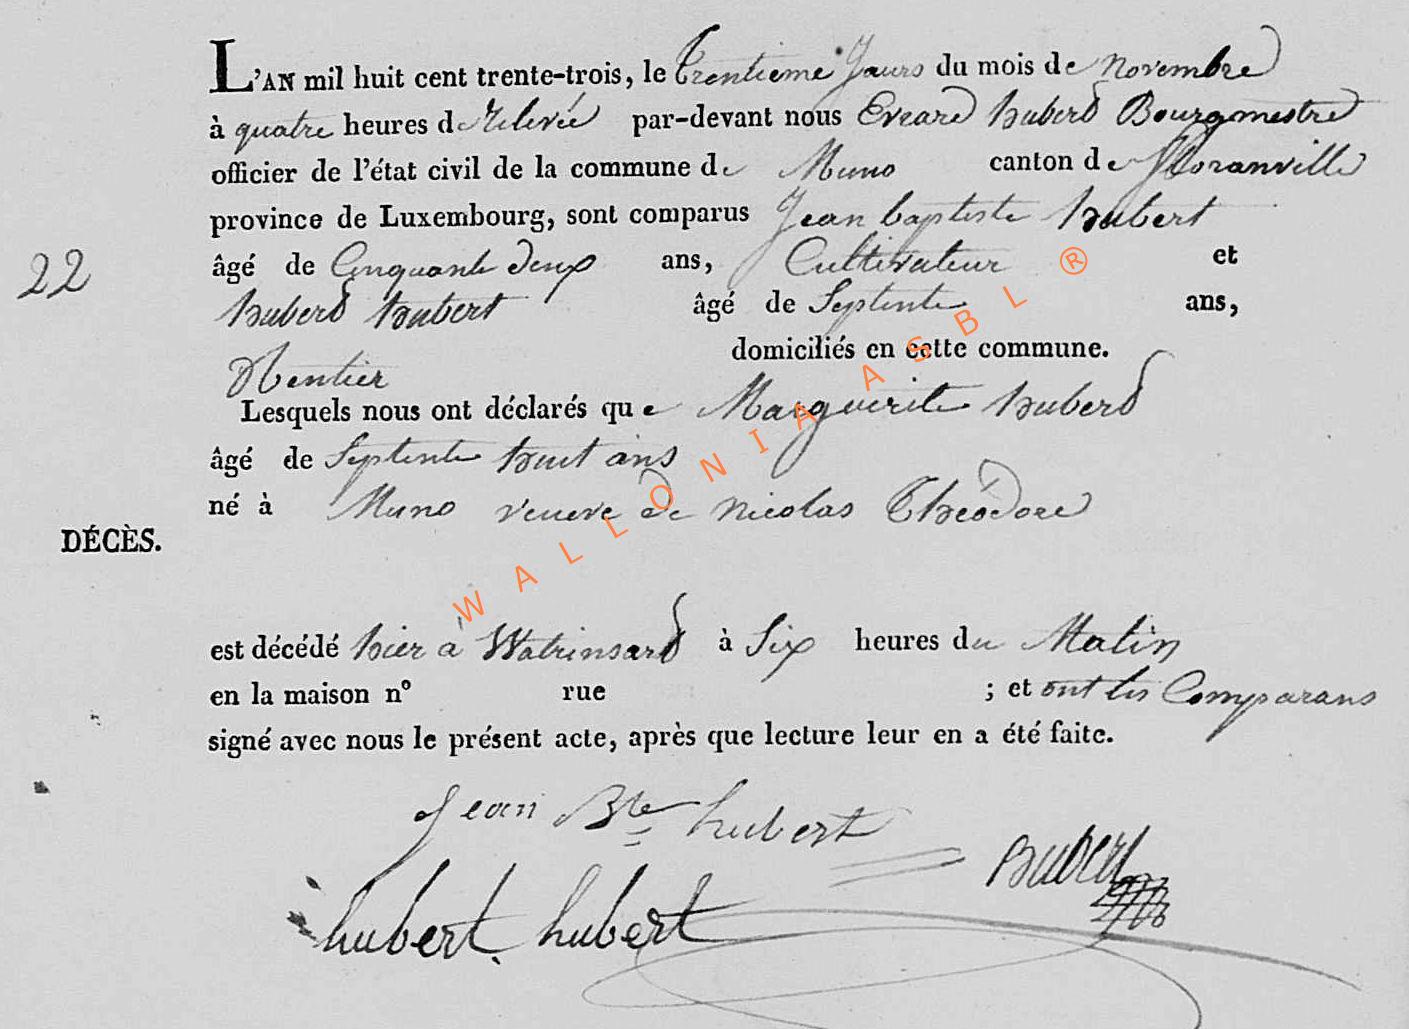 L'AN mil huit cent trente-trois, le trentieme jours du mois de novembre
à quatre heures de relevée par-devant nous Evrard huberd Bourgmestre
officier de l'état civil de la commune de Muno canton de floranville
province de Luxembourg, sont comparus Jean baptiste hubert
âgé de Cinquante deux ans, Cultivateur et
22
huberd hubert âgé de Septente ans,
Rentier domiciliés en cette commune.
Lesquels nous ont déclarés que Marguerite huberd
âgé de Septente huit ans
né à Muno veuve de nicolas Théodore
DÉCÈS.
est décédé hier à Watrinsard à Six heures du Matin
en la maison n° rue ; et ont les Comparans
signé avec nous le présent acte, après que lecture leur en a été faite.
Jean Bte hubert
hubert hubert
WALLONIA ASBL ®